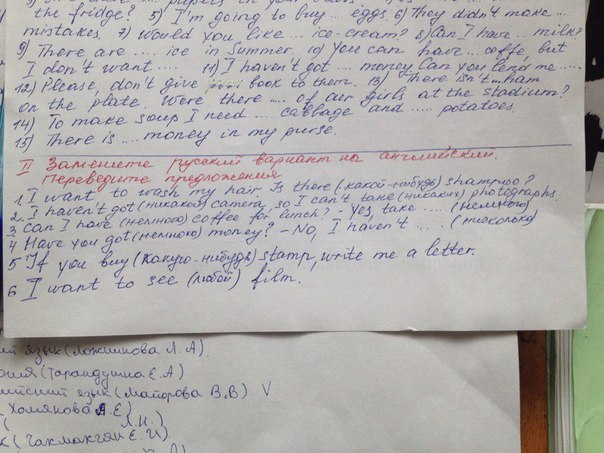 the fridge? 5) I'm going to buy ... eggs 6) They didn't make ...
mistakes 7) Would you like ... ice-cream? 8) Can I have ... milk?
9) There are .... ice in summer. 10) you can have ..... coffe, but
I don't want ..... 11) I haven't got .... money Can you lend me ....
12) Please, don't give ..... book to them. 13) There isn't ... ham
on the plate. Were there .... of our girls at the stadium?
14) To make soup I need .... cabbage and .... potatoes
15) There is ... money in my purse.
II Замените русский вариант на английский.
Переведите предложения
1. I want to wash my hair Is there (какой-нибудь) shampoo?
2. I haven't got (никакой) camera, so I can't take (никаких) photographs
3 Can I have (немного) coffee for lunch? - Yes, take ..... (немного)
4 Have you got (немного) money? - No, I haven't ... (нисколько)
5 If you buy (какую-нибудь) stamp, write me a letter.
6 I want to see (любой) film.
язык (Ложникова Л.А)
(Тарандушка Е.А)
язык (Майорова В.В) V
Хомякова А.Е)
( Л.Н.)
(Чакмакчян Е.И)